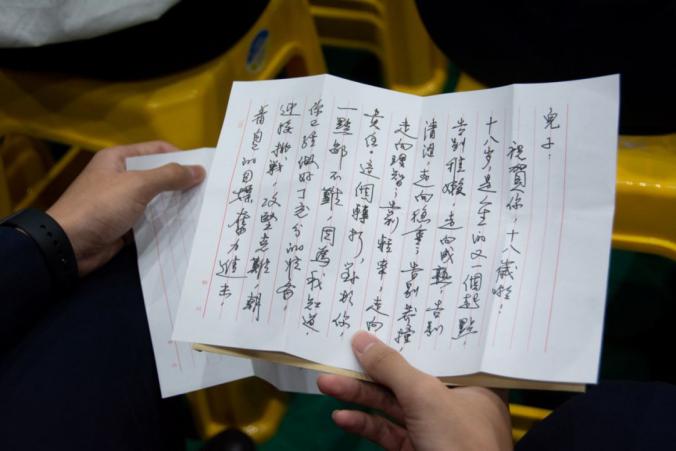 兒子：
祝賀你，十八歲啦！
十八岁是人生的又一個起點，
告别稚嫩，走向成熟；告别
清涩，走向穩重；告别莽撞，
走向理智；告别轻率，走向
责任。這個轉折，對於你，
一點都不難，因為，我知道，
你已經做好了充分的准备，
迎接挑戰，攻堅克難，朝
着自己的目標奮力進击！